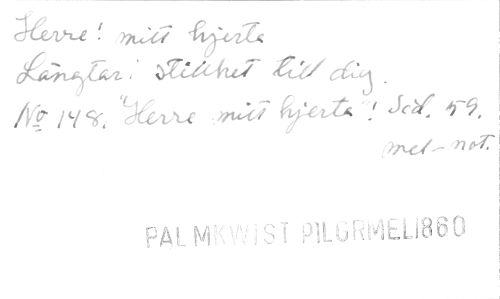 Herre! mitt hjerta
Längtar i stillhet till dig.
No 148. "Herre mitt hjerta"! Sid. 59.
mel-not.
PALMKWIST PILGRMEL1860